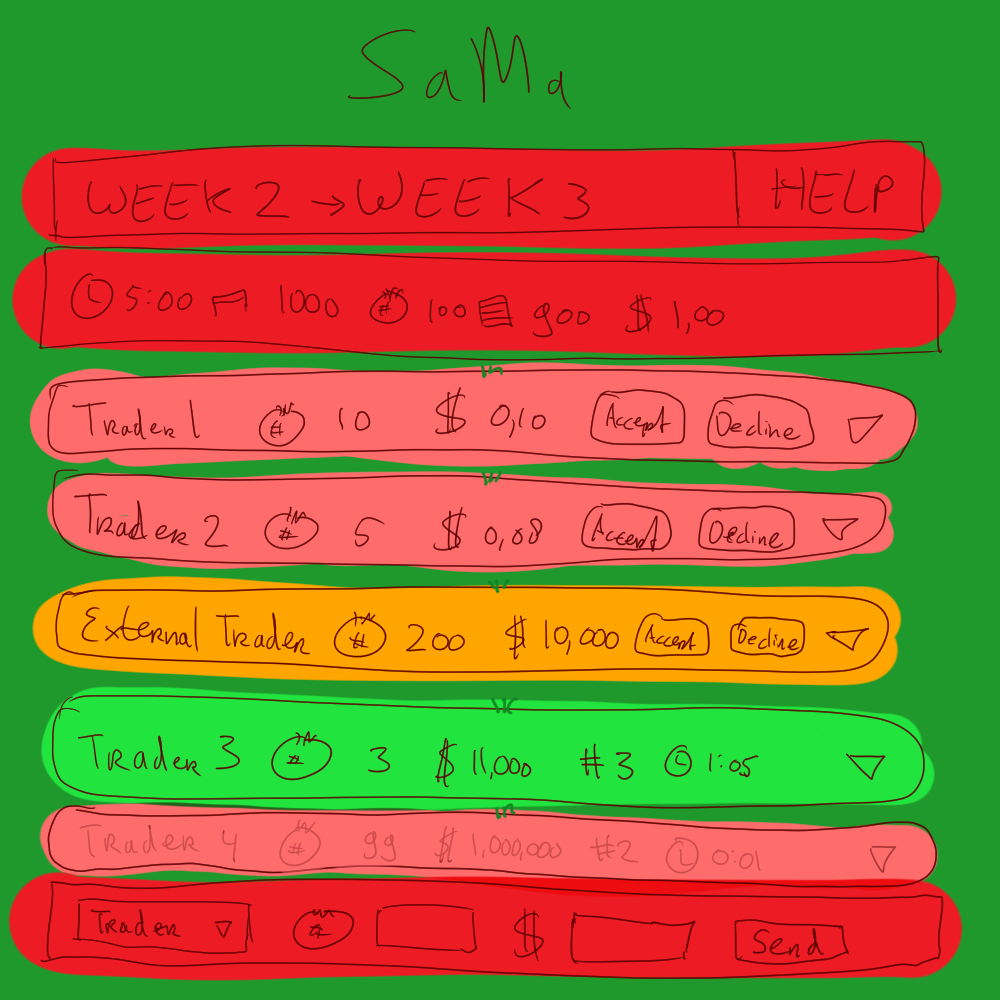 SaMa
WEEK 2 → WEEK 3 HELP
5:00 1000 # 100 900 $ 1,00
Trader 1 # 10 $ 0,10 Accept Decline
Trader 2 # 5 $ 0,08 Accept Decline
External Trader # 200 $ 10,000 Accept Decline
Trader 3 # 3 $ 11,000 #3 1:05
Trader 4 # 99 $ 1,000,000 #2 0:01
Trader # $ Send